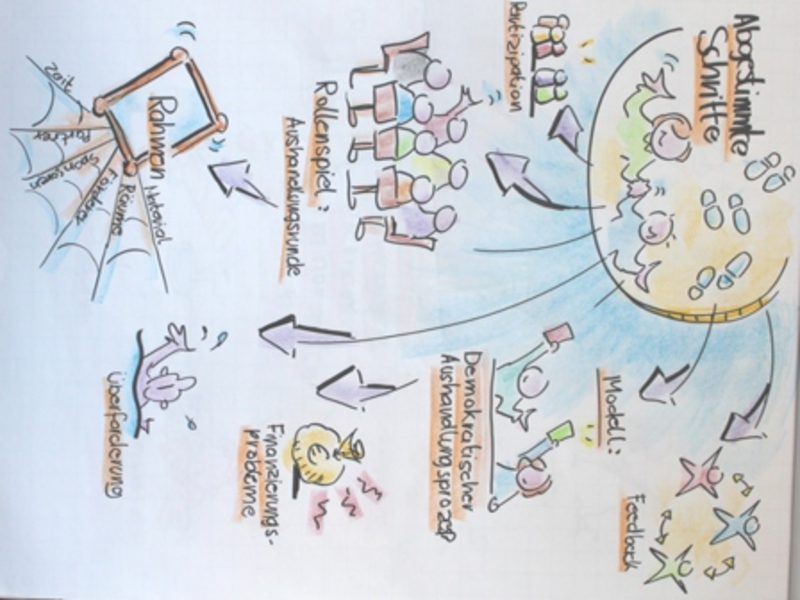 Abgestimmte
Schritte
Partizipation
Rollenspiel:
Aushandlungsrunde
Modell:
Demokratischer
Aushandlungsprozeß
Feedback
Finanzierungs-
probleme
Überforderung
Rahmen
Zeit
Partner
Sponsoren
Förderer
Räume
Material